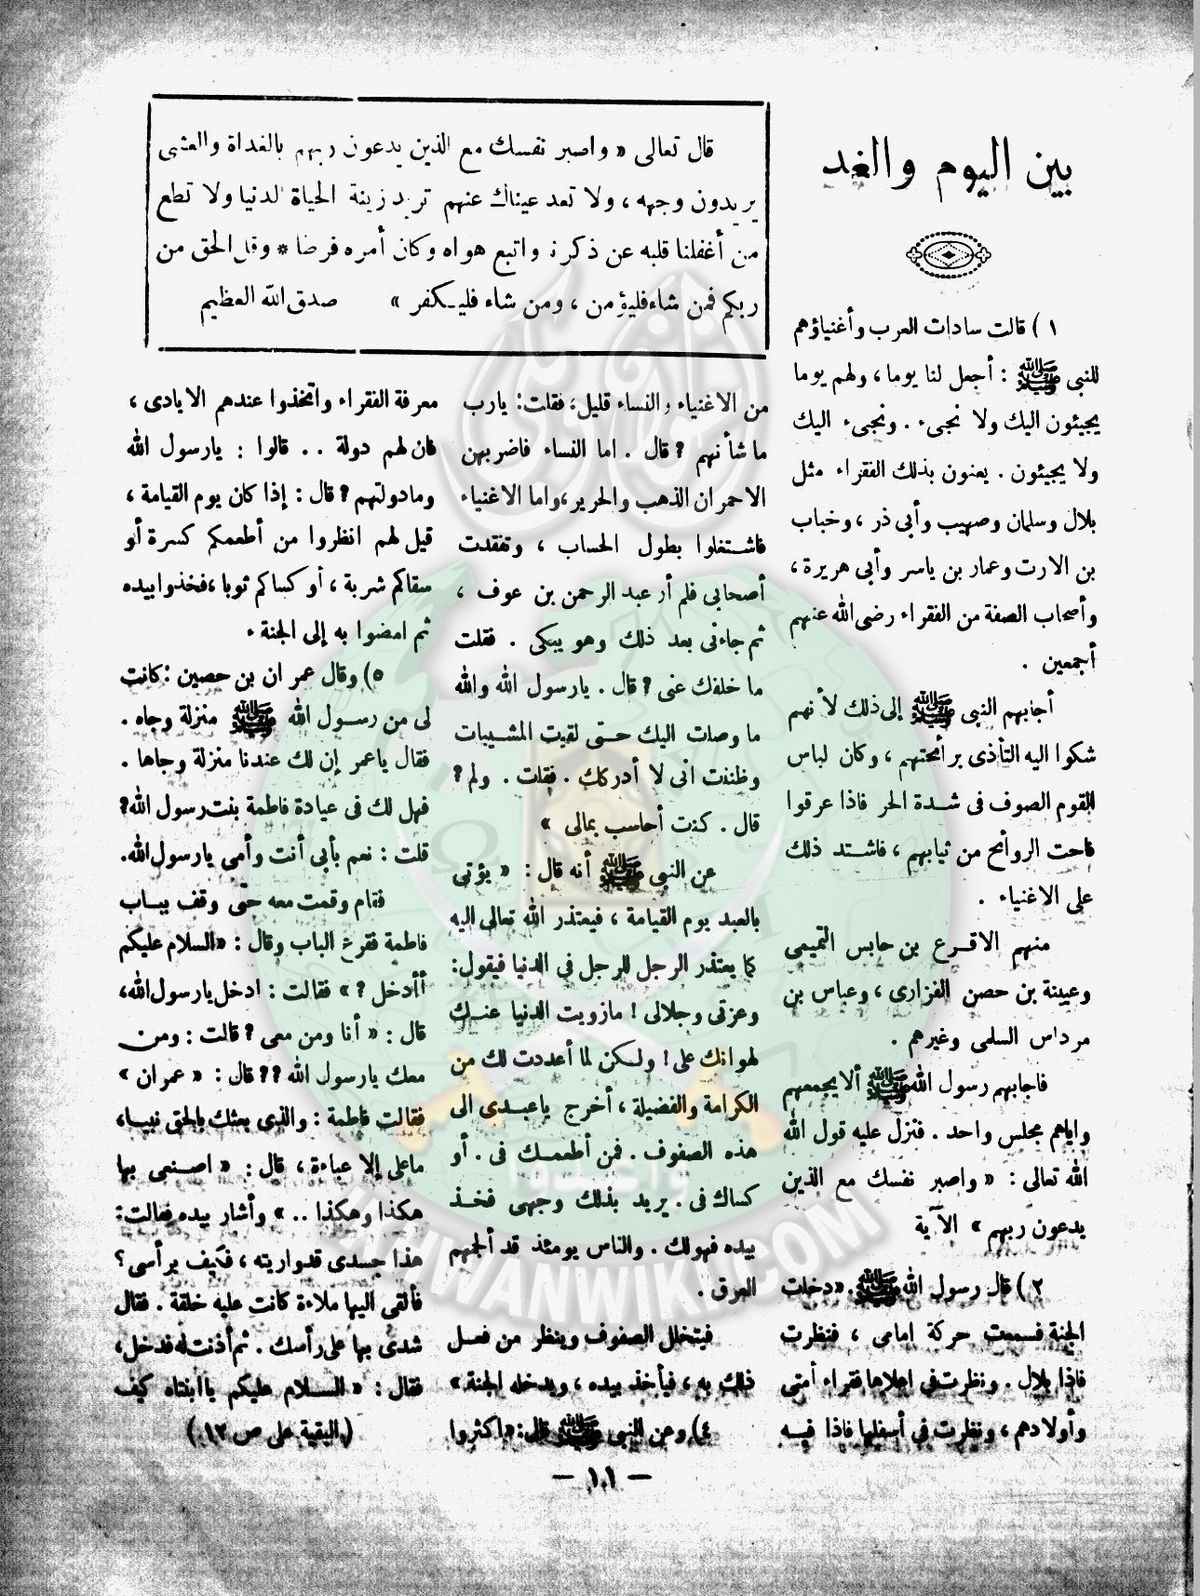 بين اليوم والغد
قال تعالى « واصبر نفسك مع الذين يدعون ربهم بالغداة والعشى
يريدون وجهه ، ولا تعد عيناك عنهم تريد زينة الحياة الدنيا ولا تطع
من أغفلنا قلبه عن ذكرنا واتبع هواه وكان أمره فرطا * وقل الحق من
ربكم فمن شاء فليؤمن ، ومن شاء فليكفر » صدق الله العظيم
١ ) قالت سادات العرب وأغنياؤهم
للنبى ﷺ : أجعل لنا يوما ، ولهم يوما
يجيئون اليك ولا نجىء . ونجىء اليك
ولا يجيئون . يعنون بذلك الفقراء مثل
بلال وسلمان وصهيب وأبى ذر ، وخباب
بن الارت وعمار بن ياسر وأبى هريرة ،
وأصحاب الصفة من الفقراء رضى الله عنهم
أجمعين .
أجابهم النبى ﷺ إلى ذلك لأنهم
شكوا اليه التأذى برائحتهم ، وكان لباس
القوم الصوف فى شدة الحر فاذا عرقوا
فاحت الروائح من ثيابهم ، فاشتد ذلك
على الاغنياء .
منهم الاقرع بن حابس التميمى
وعيينة بن حصن الفزارى ، وعباس بن
مرداس السلمى وغيرهم .
فاجابهم رسول الله ﷺ ألا يجمعهم
واياهم مجلس واحد . فنزل عليه قول الله
الله تعالى : « واصبر نفسك مع الذين
يدعون ربهم » الآية
٢ ) قال رسول الله ﷺ . «دخلت
الجنة فسمعت حركة امامى ، فنظرت
فاذا بلال . ونظرت فى اعلاها فقراء أمتى
وأولادهم ، ونظرت فى أسفلها فاذا فيه
من الاغنياء والنساء قليل ، فقلت : يارب
ما شأنهم ؟ قال . اما النساء فاضربهن
الاحمران الذهب والحرير ، واما الاغنياء
فاشتغلوا بطول الحساب ، وتفقدت
أصحابى فلم أر عبد الرحمن بن عوف ،
ثم جاءنى بعد ذلك وهو يبكى . فقلت
ما خلفك عنى ؟ قال . يارسول الله والله
ما وصلت اليك حتى لقيت المشيبات
وظننت انى لا أدركك . فقلت . ولم ؟
قال . كنت أحاسب بمالى »
عن النبى ﷺ أنه قال : « يؤتى
بالعبد يوم القيامة ، فيعتذر الله تعالى اليه
كما يعتذر الرجل للرجل فى الدنيا فيقول :
وعزتى وجلالى ! مازويت الدنيا عنك
لهوانك على ! ولكن لما أعددت لك من
الكرامة والفضيلة ، أخرج ياعبدى الى
هذه الصفوف . فمن أطعمك فى . أو
كساك فى . يريد بذلك وجهى فخذ
بيده فهولك . والناس يومئذ قد ألجمهم
العرق .
فيتخلل الصفوف وينظر من فعل
ذلك به ، فيأخذ بيده ، ويدخله الجنة »
٤) وعن النبى ﷺ قال : «اكثروا
معرفة الفقراء واتخذوا عندهم الايادى ،
فان لهم دولة . . قالوا : يارسول الله
ومادولتهم ؟ قال : إذا كان يوم القيامة ،
قيل لهم انظروا من أطعمكم كسرة أو
سقاكم شربة ، أو كساكم ثوبا ، فخذوا بيده
ثم امضوا به إلى الجنة ،
٥) وقال عمران بن حصين : كانت
لى من رسول الله ﷺ منزلة وجاه .
فقال ياعمر إن لك عندنا منزلة وجاها .
فهل لك فى عيادة فاطمة بنت رسول الله ؟
قلت : نعم بأبى أنت وأمى يارسول الله .
فقام وقمت معه حتى وقف بباب
فاطمة فقرع الباب وقال : «السلام عليكم
أأدخل ؟ » فقالت : ادخل يارسول الله ،
قال : « أنا ومن معى ؟ قالت : ومن
معك يارسول الله ؟؟ قال : « عمران »
فقالت فاطمة : والذى بعثك بالحق نبيا ،
ماعلى إلا عباءة ، قال : « اصنعى بها
هكذا وهكذا .. » وأشار بيده فقالت :
هذا جسدى قدواريته ، فكيف برأسى ؟
فألقى اليها ملاءة كانت عليه خلقة . فقال
شدى بها على رأسك . ثم أذنت له فدخل ،
فقال : « السلام عليكم ياابنتاه كيف
( البقية على ص ١٢ )
— ١١ —
وأعدوا
IKHWANWIKI.COM